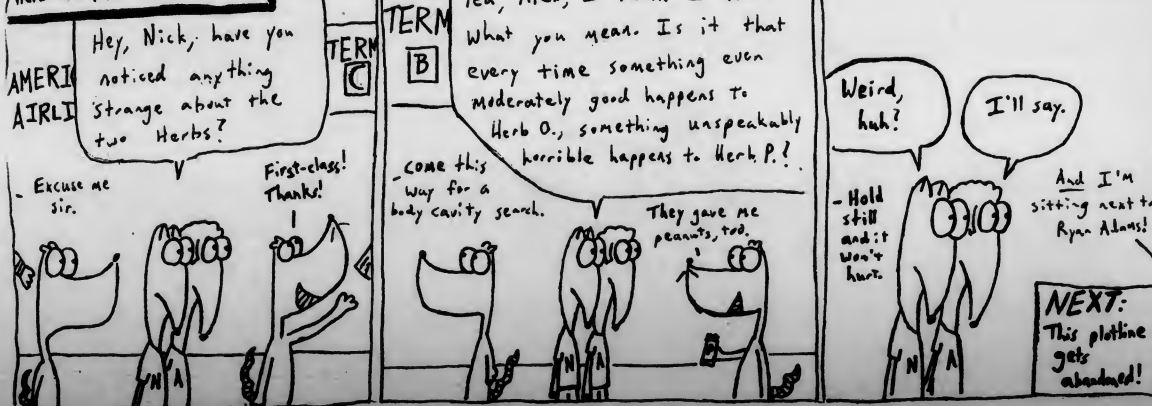 AMERI
AIRLI
Hey, Nick, have you
noticed anything
strange about the
two Herbs?
TERM
C
- Excuse me
sir.
First-class!
Thanks!
N A
TERM
B
what you mean. Is it that
every time something even
moderately good happens to
Herb O., something unspeakably
horrible happens to Herb P.?
- come this
way for a
body cavity search.
They gave me
peanuts, too.
N A
Weird,
huh?
I'll say.
- Hold
still
and it
won't
hurt.
And I'm
sitting next to
Ryan Adams!
N A
NEXT:
This plotline
gets
abandoned!